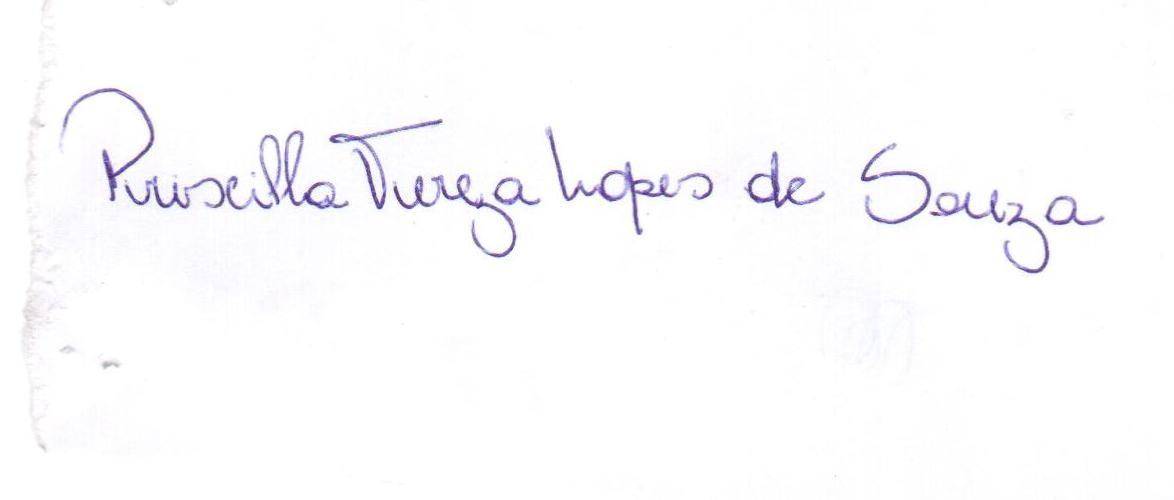 Priscilla Tereza Lopes de Souza